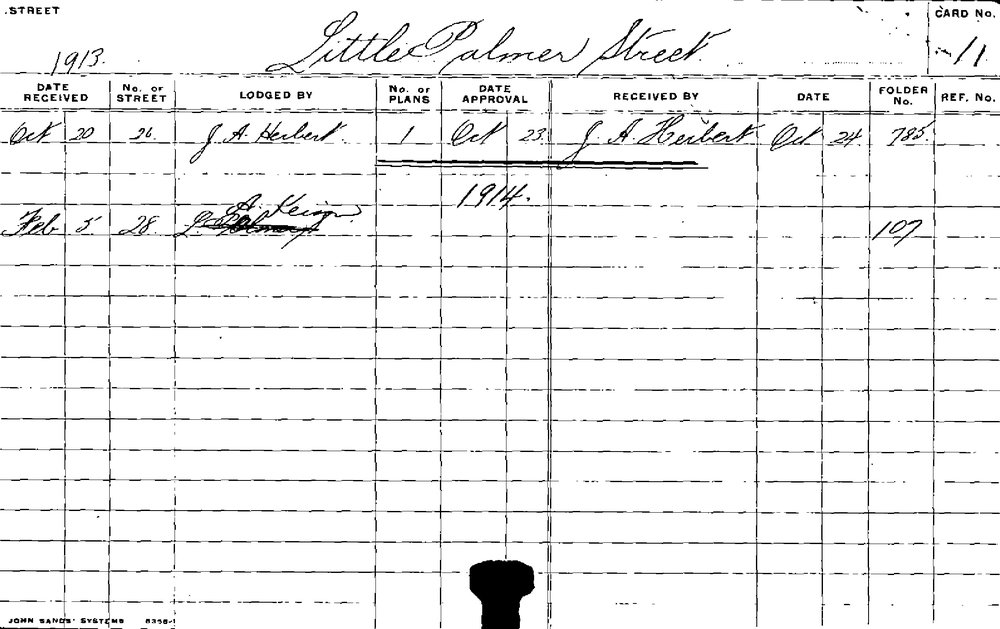 .STREET
CARD No.
1913.
Little Palmer Street.
11
DATE RECEIVED No. OF STREET LODGED BY No. OF PLANS DATE APPROVAL RECEIVED BY DATE FOLDER No. REF. No.
Oct 20 26 J. A. Herbert. 1 Oct 23. J. A. Herbert Oct 24 785
1914.
A.
Feb 5 28. 107
JOHN SANDS' SYSTEMS